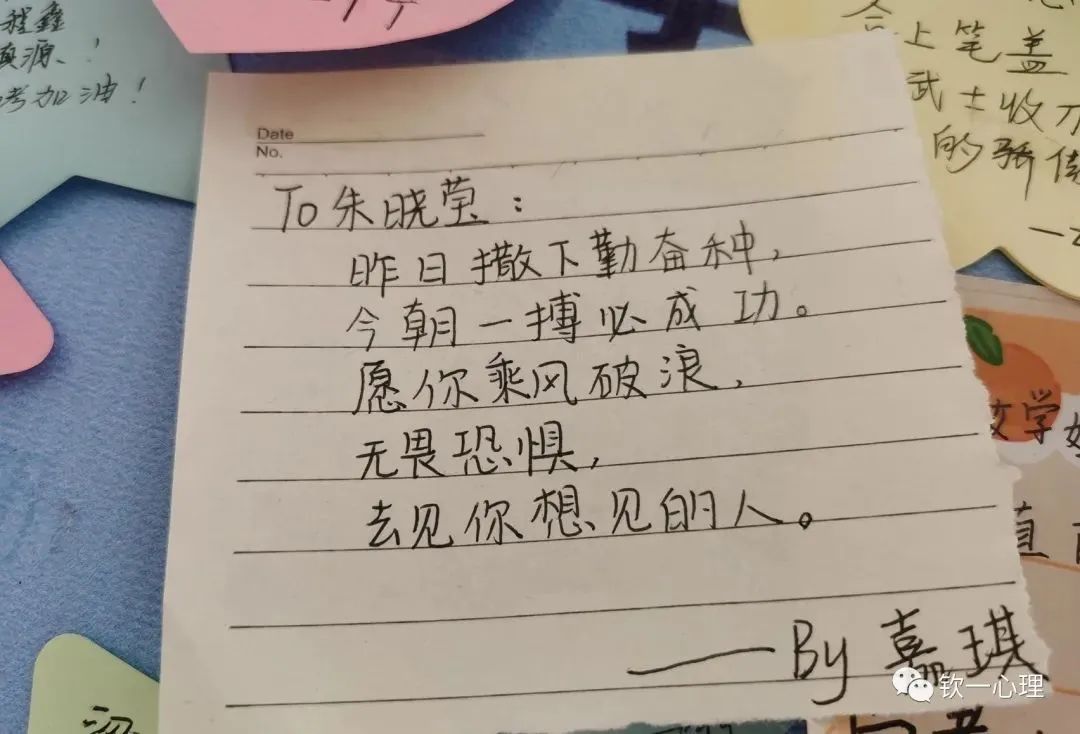 程鑫
源！
考加油！
合上笔盖
武士收刀
的骄傲
Date
No.
To朱晓莹：
昨日撒下勤奋种，
今朝一搏必成功。
愿你乘风破浪，
无畏恐惧，
去见你想见的人。
——By 嘉琪
文学
直
钦一心理